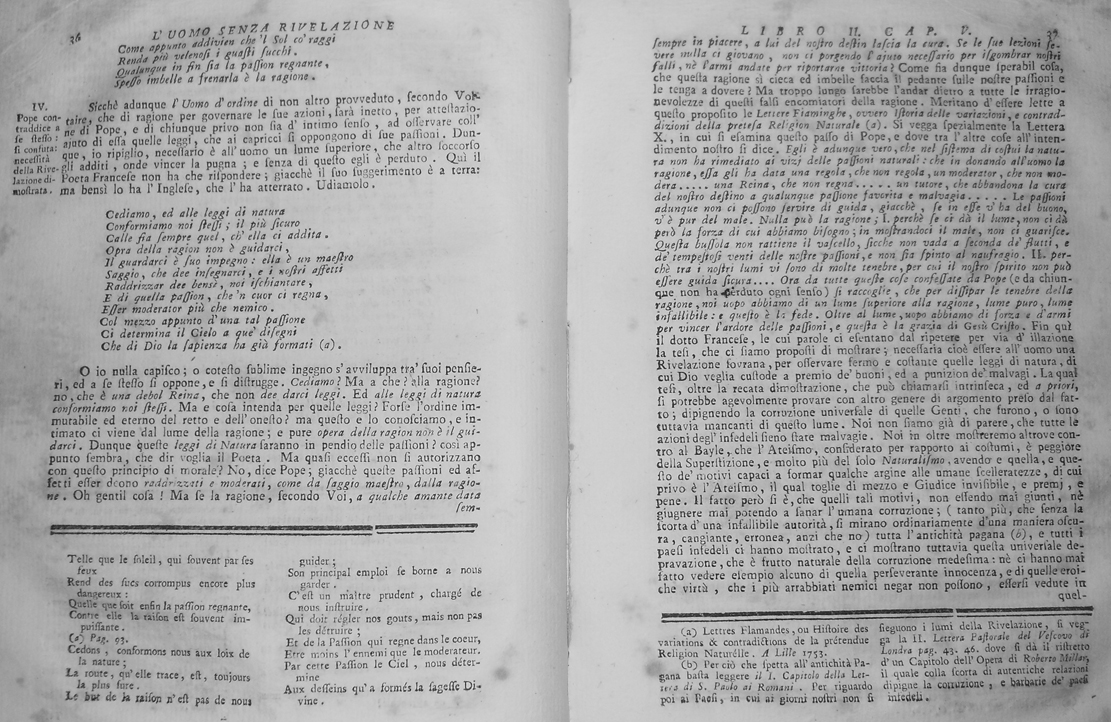 36 L'UOMO SENZA RIVELAZIONE
Come appunto addivien che 'l Sol co' raggi
Renda più velenosi i guasti succhi.
Qualunque in fin sia la passion regnante,
Spesso imbelle a frenarla è la ragione.
IV.
Pope con-
traddice a
se stesso:
si confuta:
necessità
della Rive-
lazione di-
mostrata.
Sicchè adunque l'Uomo d'ordine di non altro provveduto, secondo Vol-
taire, che di ragion per governare le sue azioni, sarà inetto, per attestazio-
ne di Pope, e di chiunque privo non sia d'intimo senso, ad osservare coll'
ajuto di essa quelle leggi, che ai capricci si oppongono di sue passioni. Dun-
que, io ripiglio, necessario è all'uomo un lume superiore, che altro soccorso
gli additi, onde vincer la pugna; e senza di questo egli è perduto. Quì il
Poeta Francese non ha che rispondere; giacchè il suo suggerimento è a terra:
ma bensì lo ha l'Inglese, che l'ha atterrato. Udiamolo.
Cediamo, ed alle leggi di natura
Conformiamo noi stessi; il più sicuro
Calle fia sempre quel, ch'ella ci addita.
Opra della ragion non è guidarci,
Il guardarci è suo impegno: ella è un maestro
Saggio, che dee insegnarci, e i nostri affetti
Raddrizzar dee bensì, noi ischiantare,
E di quella passion, che 'n cuor ci regna,
Esser moderator più che nemico.
Col mezzo appunto d'una tal passione
Ci determina il Cielo a que' disegni
Che di Dio la sapienza ha già formati (a).
O io nulla capisco; o cotesto sublime ingegno s'avviluppa tra' suoi pensie-
ri, ed a se stesso si oppone, e si distrugge. Cediamo? Ma a che? alla ragione?
no, che è una debol Reina, che non dee darci leggi. Ed alle leggi di natura
conformiamo noi stessi. Ma e cosa intenda per quelle leggi? Forse l'ordine im-
mutabile ed eterno del retto e dell'onesto? ma questo lo conosciamo, e in-
timato ci viene dal lume della ragione; e pure opera della ragion non è il gui-
darci. Dunque queste leggi di Natura saranno in pendio delle passioni? così ap-
punto sembra, che dir voglia il Poeta. Ma quasi eccessi non si autorizzano
con questo principio di morale? No, dice Pope; giacchè queste passioni ed af-
fetti esser deono raddrizzati e moderati, come da saggio maestro, dalla ragio-
ne. Oh gentil cosa! Ma se la ragione, secondo Voi, a qualche amante data
sem-
Telle que le soleil, qui souvent par ses
feux
Rend des sucs corrompus encore plus
dangereux:
Quelle que soit enfin la passion regnante,
Contre elle la raison est souvent im-
puissante.
(a) Pag. 93.
Cedons, conformons nous aux loix de
la nature;
La route, qu'elle trace, est, toujours
la plus sure.
Le but de la raison n'est pas de nous
guider;
Son principal emploi se borne a nous
garder.
C'est un maître prudent, chargé de
nous instruire.
Qui doit régler nos gouts, mais non pas
les détruire;
Et de la Passion qui regne dans le coeur,
Etre moins l'ennemi que le moderateur.
Par cette Passion le Ciel, nous déter-
mine
Aux desseins qu'a formés la sagesse Di-
vine.
LIBRO II. CAP. V. 37
sempre in piacere, a lui del nostro destin lascia la cura. Se le sue lezioni se-
vere nulla ci giovano, non ci porgendo l'ajuto necessario per isgombrar nostri
falli, nè l'armi andate per riportarne vittoria? Come sia dunque sperabil cosa,
che questa ragione sì cieca ed imbelle faccia il pedante sulle nostre passioni e
le tenga a dovere? Ma troppo lungo sarebbe l'andar dietro a tutte le irragio-
nevolezze di questi falsi encomiatori della ragione. Meritano d'essere lette a
questo proposito le Lettere Fiaminghe, ovvero Istoria delle variazioni, e contrad-
dizioni della pretesa Religion Naturale (a). Si vegga spezialmente la Lettera
X., in cui si esamina questo passo di Pope, e dove tra l'altre cose all'inten-
dimento nostro si dice. Egli è adunque vero, che nel sistema di costui la natu-
ra non ha rimediato ai vizj delle passioni naturali: che in donando all'uomo la
ragione, essa gli ha data una regola, che non regola, un moderator, che non mo-
dera..... una Reina, che non regna..... un tutore, che abbandona la cura
del nostro destino a qualunque passione favorita e malvagia..... Le passioni
adunque non ci possono servire di guida, giacchè, se in esse v'ha del buono,
v'è pur del male. Nulla può la ragione; I. perchè se ci dà il lume, non ci dà
però la forza di cui abbiamo bisogno; in mostrandoci il male, non ci guarisce.
Questa bussola non rattiene il vascello, sicche non vada a seconda de' flutti, e
de' tempestosi venti delle nostre passioni, e non sia spinto al naufragio. II. per-
chè tra i nostri lumi vi sono di molte tenebre, per cui il nostro spirito non può
essere guida sicura.... Ora da tutte queste cose confessate da Pope (e da chiun-
que non ha perduto ogni senso) si raccoglie, che per dissipar le tenebre della
ragione, noi uopo abbiamo di un lume superiore alla ragione, lume puro, lume
infallibile: e questo è la fede. Oltre al lume, uopo abbiamo di forza e d'armi
per vincer l'ardore delle passioni, e questa è la grazia di Gesù Cristo. Fin quì
il dotto Francese, le cui parole ci esentano dal ripetere per via d'illazione
la tesi, che ci siamo proposti di mostrare; necessaria cioè essere all'uomo una
Rivelazione sovrana, per osservare fermo e costante quelle leggi di natura, di
cui Dio veglia custode a premio de' buoni, ed a punizion de' malvagi. La qual
tesi, oltre la recata dimostrazione, che può chiamarsi intrinseca, ed a priori,
si potrebbe agevolmente provare con altro genere di argomento preso dal fat-
to; dipignendo la corruzione universale di quelle Genti, che furono, o sono
tuttavia mancanti di questo lume. Noi non siamo già di parere, che tutte le
azioni degl'infedeli sieno state malvagie. Noi in oltre mostreremo altrove con-
tro al Bayle, che l'Ateismo, considerato per rapporto ai costumi, è peggiore
della Superstizione, e molto più del solo Naturalismo, avendo e quella, e que-
sto de' motivi capaci a formar qualche argine alle umane scelleratezze, di cui
privo è l'Ateismo, il qual toglie di mezzo e Giudice invisibile, e premj, e
pene. Il fatto però si è, che quelli tali motivi, non essendo mai giunti, nè
giugnere mai potendo a sanar l'umana corruzione; (tanto più, che senza la
scorta d'una infallibile autorità, si mirano ordinariamente d'una maniera oscu-
ra, cangiante, erronea, anzi che no) tutta l'antichità pagana (b), e tutti i
paesi infedeli ci hanno mostrato, e ci mostrano tuttavia questa universale de-
pravazione, che è frutto naturale della corruzione medesima: nè ci hanno mai
fatto vedere esempio alcuno di quella perseverante innocenza, e di quelle eroi-
che virtù, che i più arrabbiati nemici negar non possono, essersi vedute in
quel-
(a) Lettres Flamandes, ou Histoire des
variations & contradictions de la prétendue
Religion Naturélle. A Lille 1753.
(b) Per ciò che spetta all'antichità Pa-
gana basta leggere il I. Capitolo della Let-
tera di S. Paolo ai Romani. Per riguardo
poi ai Paesi, in cui ai giorni nostri non si
sieguono i lumi della Rivelazione, si veg-
ga la II. Lettera Pastorale del Vescovo di
Londra pag. 43. 46. dove si dà il ristretto
d'un Capitolo dell'Opera di Roberto Millar,
il quale colla scorta di autentiche relazioni
dipigne la corruzione, e barbarie de' paesi
infedeli.